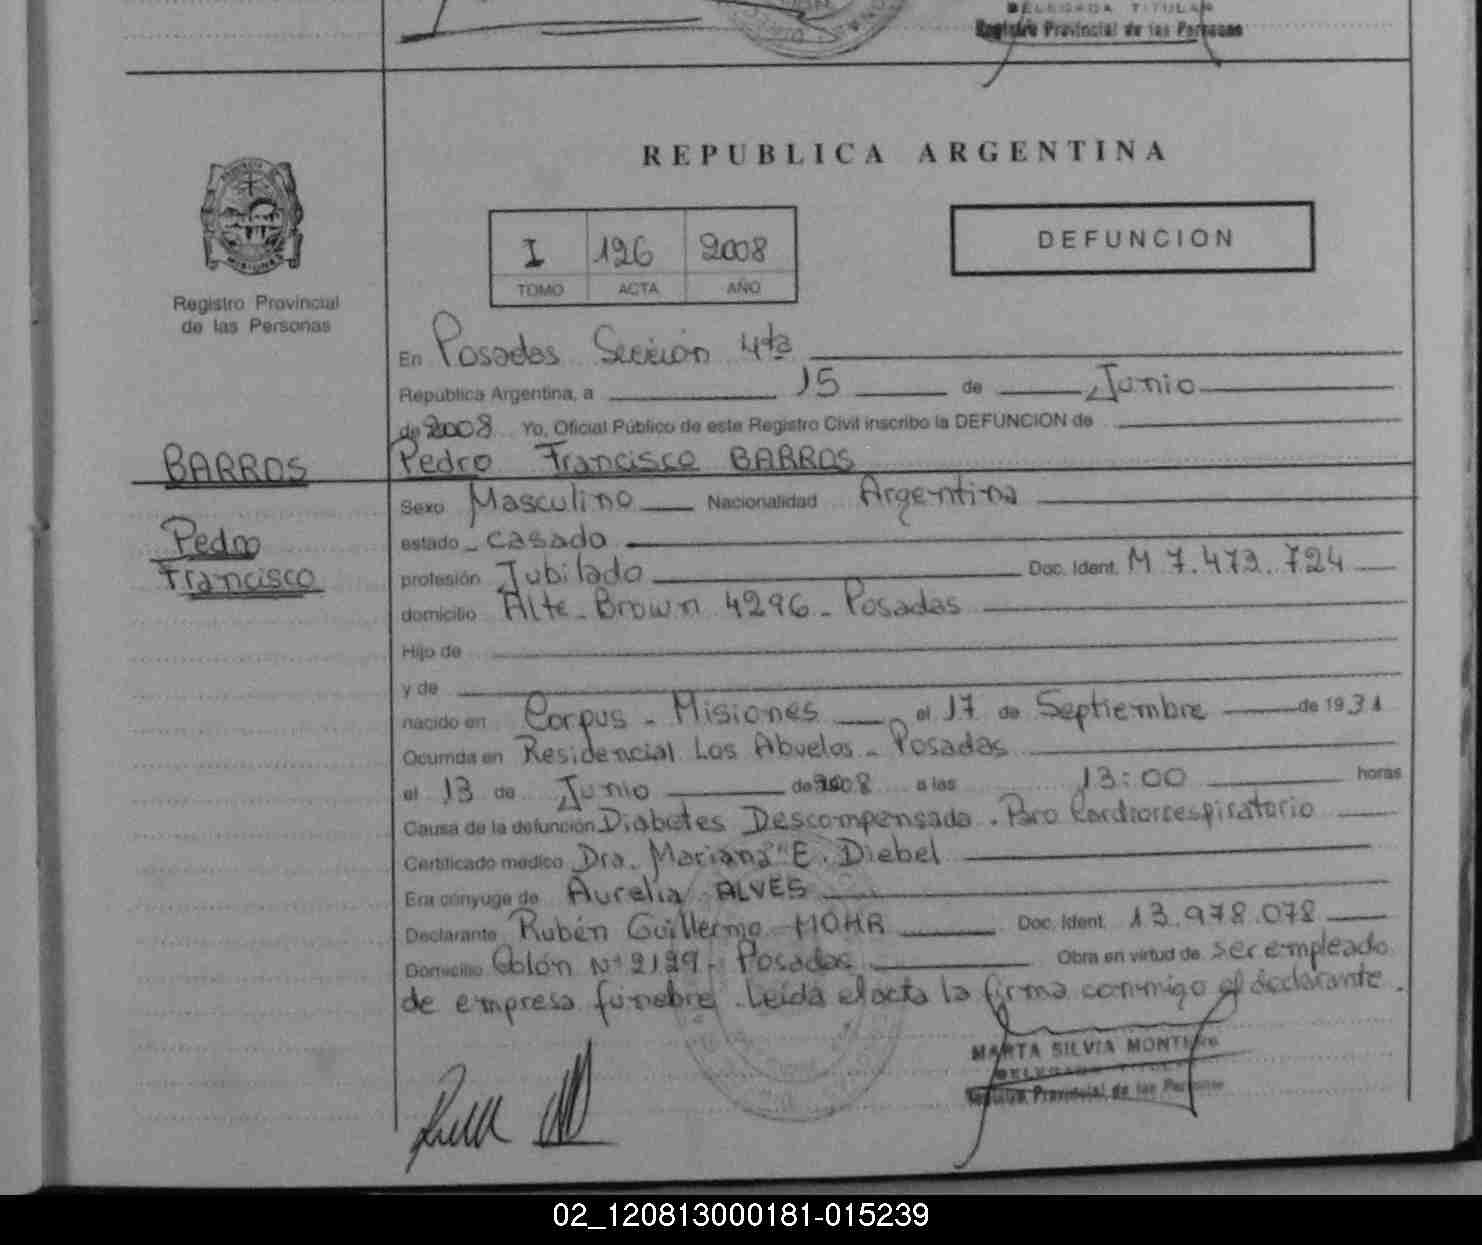 DELEGADA TITULAR
Registro Provincial de las Personas
REPUBLICA ARGENTINA
I 126 2008
TOMO ACTA AÑO
DEFUNCION
Registro Provincial
de las Personas
En Posadas Sección 4ta
República Argentina, a 15 de Junio
de 2008 Yo, Oficial Público de este Registro Civil inscribo la DEFUNCION de
BARROS Pedro Francisco BARROS
Sexo Masculino Nacionalidad Argentina
Pedro estado casado
Francisco profesión Jubilado Doc. Ident. M 7.473.724
domicilio Alte. Brown 4296 - Posadas
Hijo de
y de
nacido en Corpus - Misiones el 17 de Septiembre de 1931
Ocurrida en Residencial Los Abuelos - Posadas
el 13 de Junio de 2008 a las 13:00 horas
Causa de la defunción Diabetes Descompensada. Paro Cardiorrespiratorio
Certificado médico Dra. Mariana E. Diebel
Era cónyuge de Aurelia ALVES
Declarante Rubén Guillermo MOHR Doc. Ident. 13.978.078
Domicilio Colón Nº 2129 - Posadas Obra en virtud de ser empleado
de empresa fúnebre. Leída el acta la firma conmigo el declarante.
MARTA SILVIA MONTERO
DELEGADA TITULAR
Registro Provincial de las Personas
02_120813000181-015239